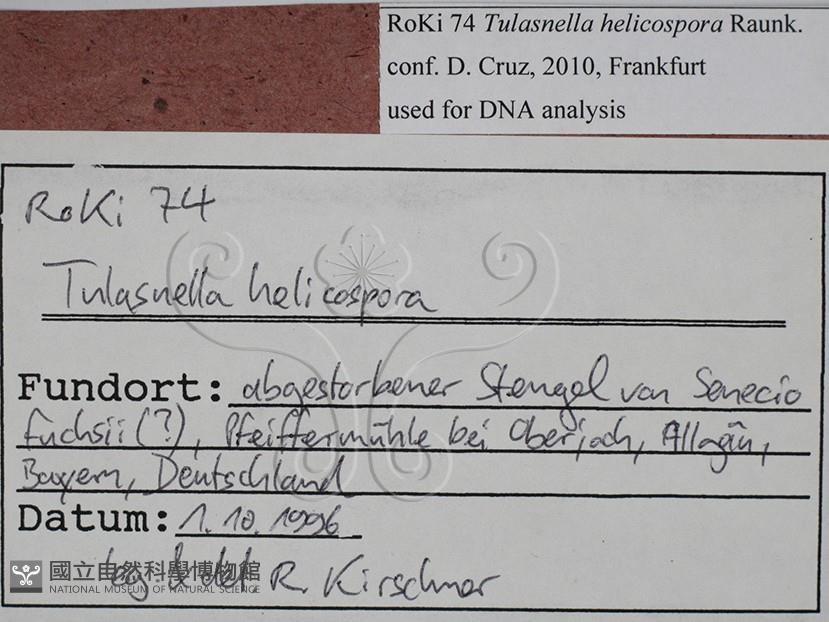 RoKi 74 Tulasnella helicospora Raunk.
conf. D. Cruz, 2010, Frankfurt
used for DNA analysis
RoKi 74
Tulasnella helicospora
Fundort: abgestorbener Stengel von Senecio
fuchsii (?), Pfeiffermühle bei Oberjoch, Allgäu,
Bayern, Deutschland
Datum: 1.10.1996
leg. & det R. Kirschner
國立自然科學博物館
NATIONAL MUSEUM OF NATURAL SCIENCE